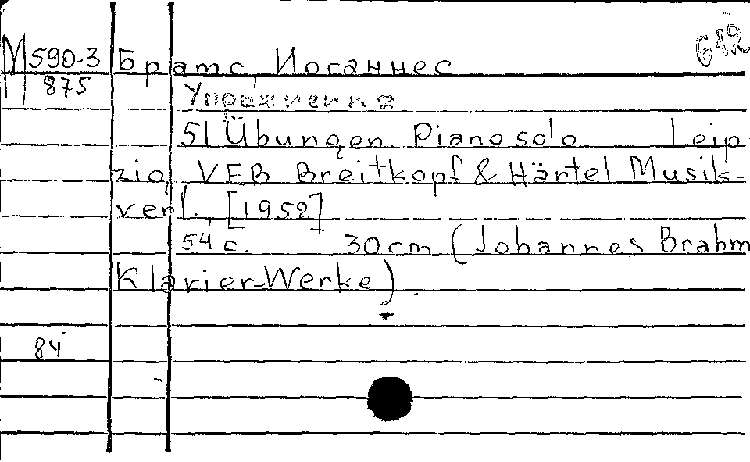 М 590-3 Брамс, Иоганнес
875 Упражнения
51 Übungen. Piano solo. Leip
zig, VEB Breitkopf & Härtel Musik-
verl., [1952]
54 с. 30 cm (Johannes Brahm
Klavier-Werke).
84